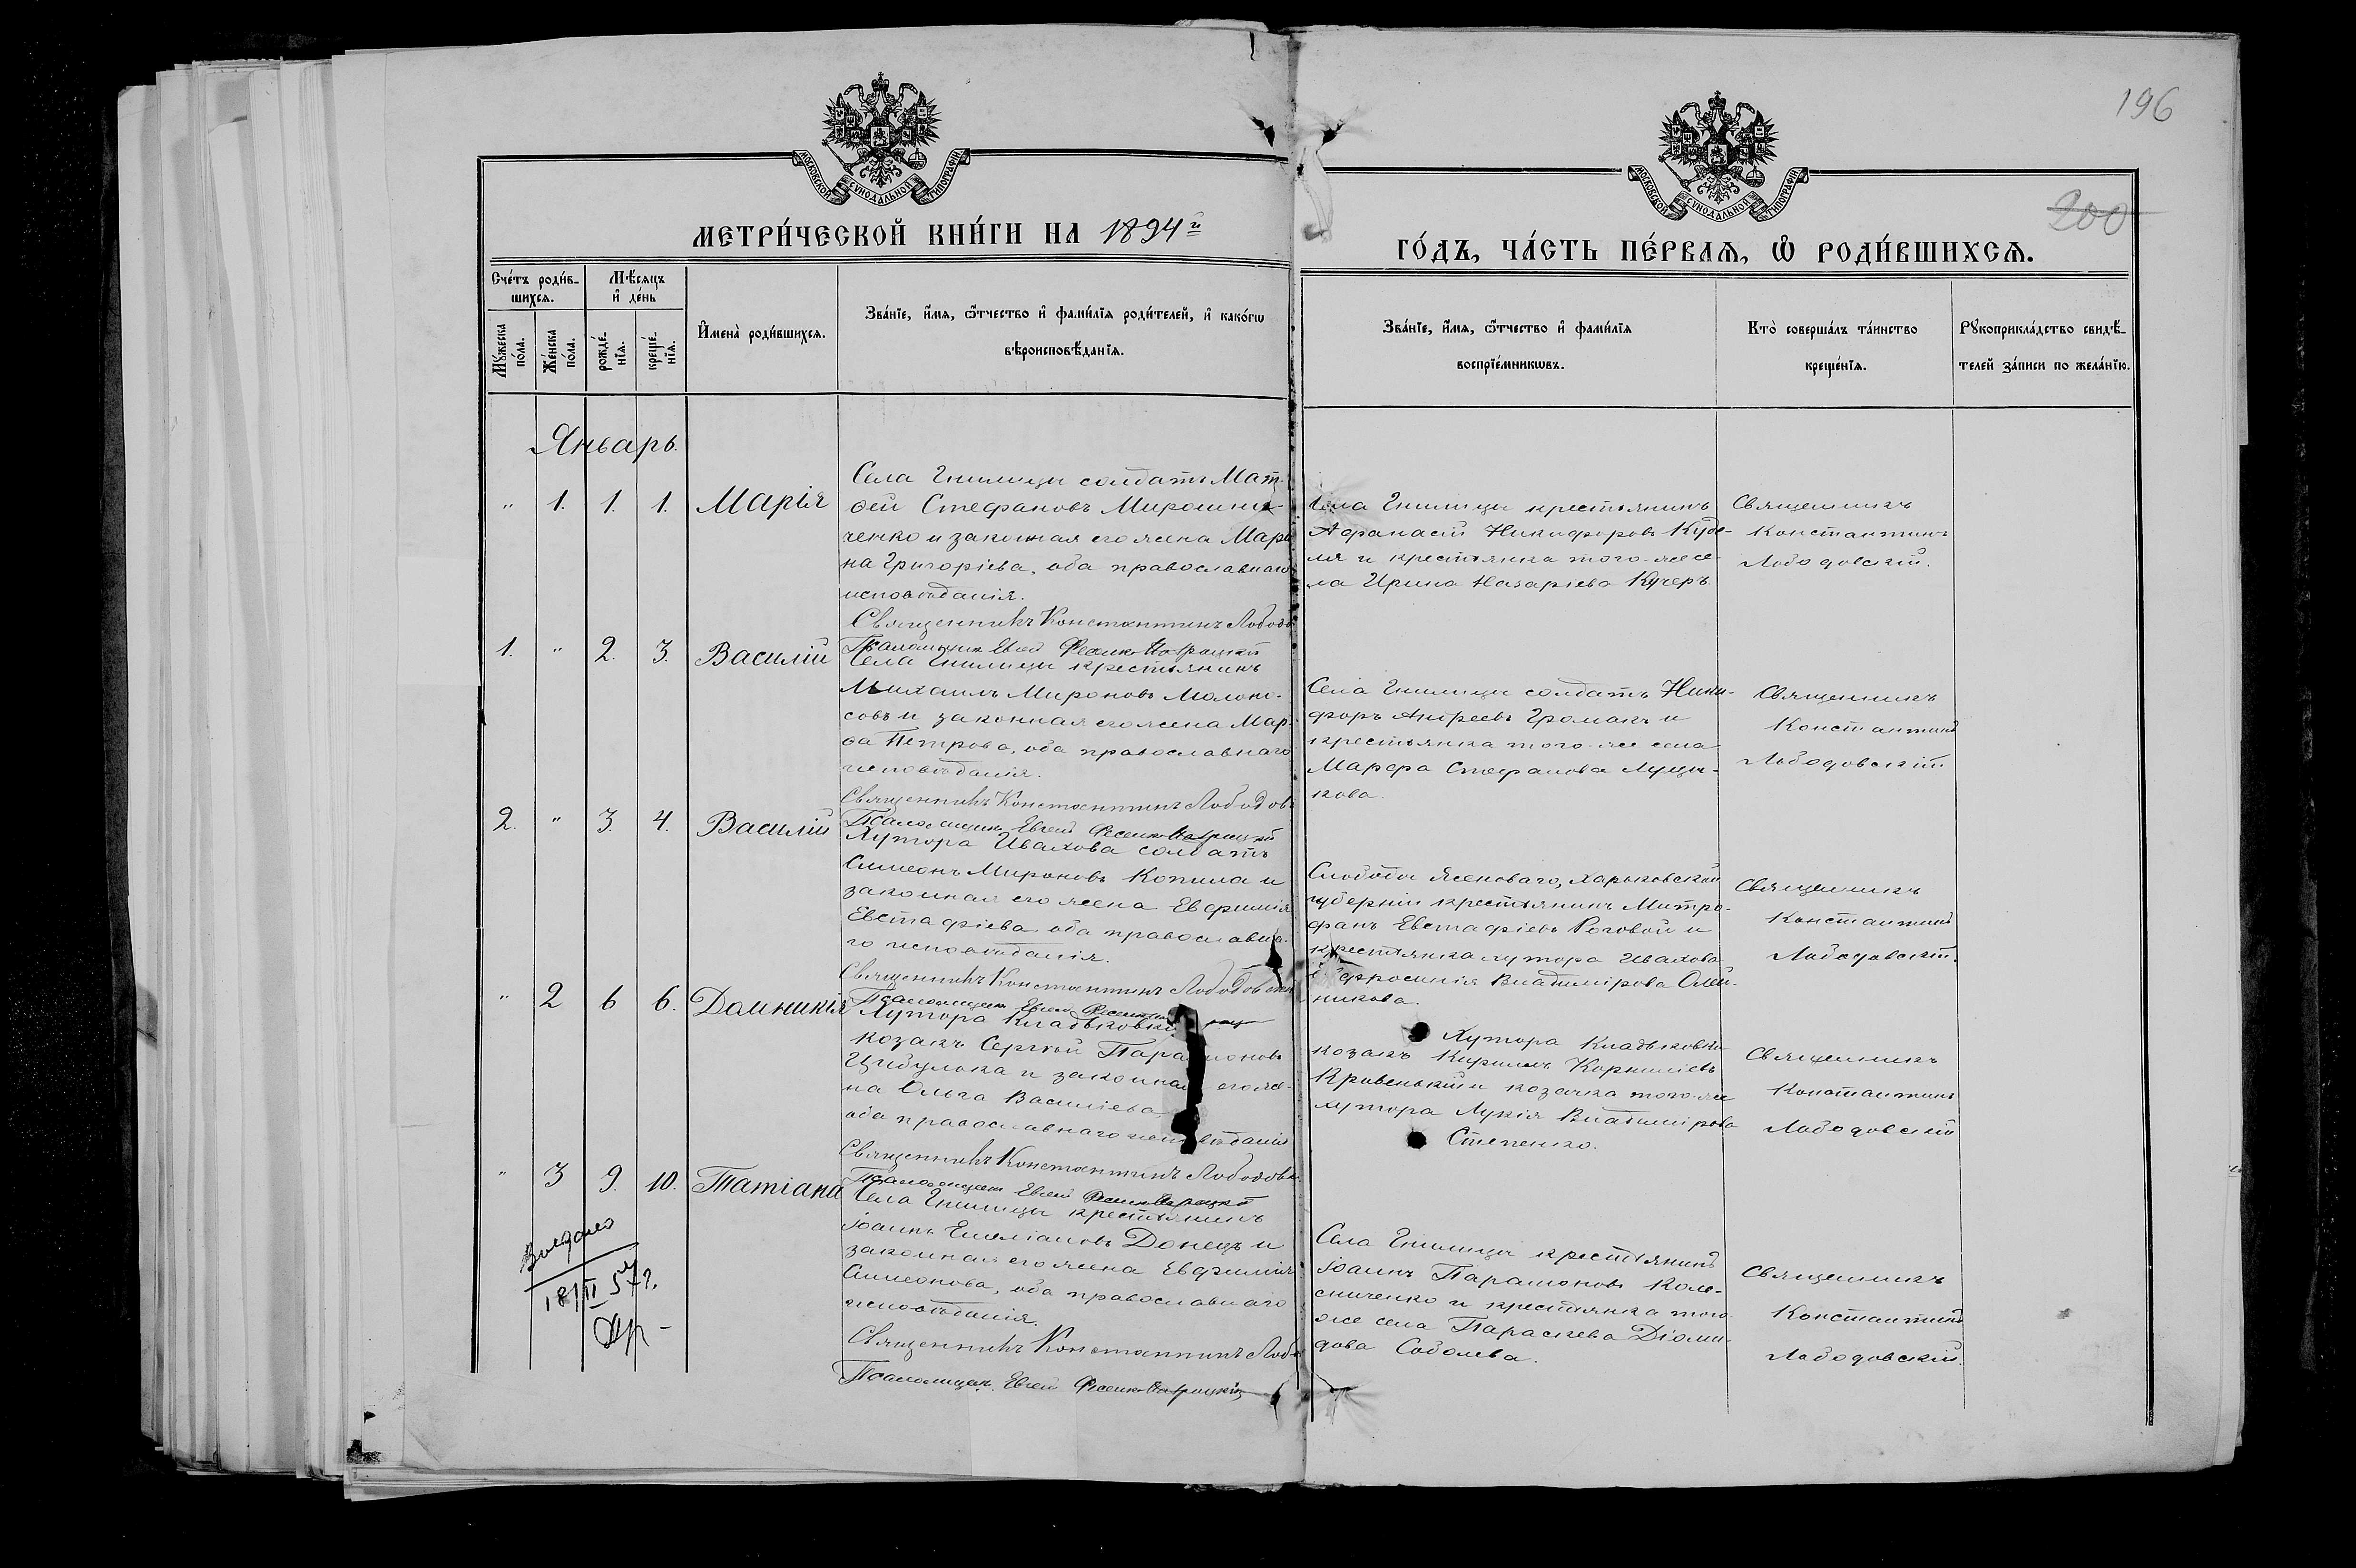 196
200
МОСКОВСКОЙ СѴНОДАЛЬНОЙ ТИПОГРАФІИ
МОСКОВСКОЙ СѴНОДАЛЬНОЙ ТИПОГРАФІИ
МЕТРИ́ЧЕСКОЙ КНИ́ГИ НА 1894й
ГО́ДЪ, ЧА́СТЬ ПЕ́РВАѦ, Ѡ҆ РОДИ́ВШИХСѦ.
Сче́тъ роди́в-
шихсѧ.
Мꙋ́жеска по́ла.
Же́нска по́ла.
Мѣ́сяцъ
и҆ де́нь
рожде́-
нїѧ.
креще́-
нїѧ.
И҆мена̀ роди́вшихсѧ.
Зва́нїе, и҆́мѧ, ѻ҆́тчество и҆ фами́лїѧ роди́телей, и҆ како́гѡ
вѣроисповѣ́данїѧ.
Зва́нїе, и҆́мѧ, ѻ҆́тчество и҆ фами́лїѧ
воспрїе́мникѡвъ.
Кто̀ соверша́лъ та́инство
креще́нїѧ.
Рꙋкоприкла́дство свидѣ́-
телей за́писи по жела́нїю.
Январь.
" 1. 1. 1. Марія
Села Гнилицы солдатъ Мат-
ѳей Стефановъ Мирошни-
ченко и законная его жена Мари
на Григоріева, оба православнаго
исповѣданія.
Священникъ Константинъ Лободов
Псаломщикъ
Села Гнилицы крестьянинъ
Афанасій Никифоровъ Кубе-
ля и крестьянка того-же се-
ла Ирина Назаріева Кучеръ
Священникъ
Константинъ
Лободовскій.
1. " 2. 3. Василій
Села Гнилицы крестьянинъ
Михаилъ Мироновъ Молоко-
совъ и законная его жена Мар-
ѳа Петрова, оба православнаго
исповѣданія.
Священникъ Константинъ Лободов
Псаломщикъ
Села Гнилицы солдатъ Ники-
форъ Андреевъ Громакъ и
крестьянка того-же села
Марфа Стефанова Лущи-
кова.
Священникъ
Константинъ
Лободовскій
2. " 3. 4. Василій
Хутора Ивахова солдатъ
Симеонъ Мироновъ Копила и
законная его жена Евфимія
Евстафіева, оба православна-
го исповѣданія.
Священникъ Константинъ Лободовск
Псаломщикъ
Слободы Ясеноваго, Харьковской
губерніи крестьянинъ Митро-
фанъ Евстафіевъ Роговой и
крестьянка хутора Ивахова
Евфросинія Владимірова Олей-
никова.
Священникъ
Константинъ
Лободовскій.
" 2 6 6. Домникія
Хутора Кладьковки
козакъ Сергѣй Парамоновъ
Цыбулька и законная его же-
на Ольга Василіева,
оба православнаго исповѣданія
Священникъ Константинъ Лободовск
Псаломщикъ
Хутора Кладьковки
козакъ Кириллъ Корниліевъ
Кривенькій и козачка того-же
хутора Лукія Владимірова
Степенко.
Священникъ
Константинъ
Лободовскій
" 3 9. 10. Татіана
Села Гнилицы крестьянинъ
Іоаннъ Емеліановъ Донецъ и
законная его жена Евфимія
Симеонова, оба православнаго
исповѣданія.
Священникъ Константинъ Лобо
Псаломщикъ
Села Гнилицы крестьянинъ
Іоаннъ Парамоновъ Коле-
сниченко и крестьянка того
же села Параскева Діоми-
дова Соболева.
Священникъ
Константинъ
Лободовскій.
18/II 57 г.